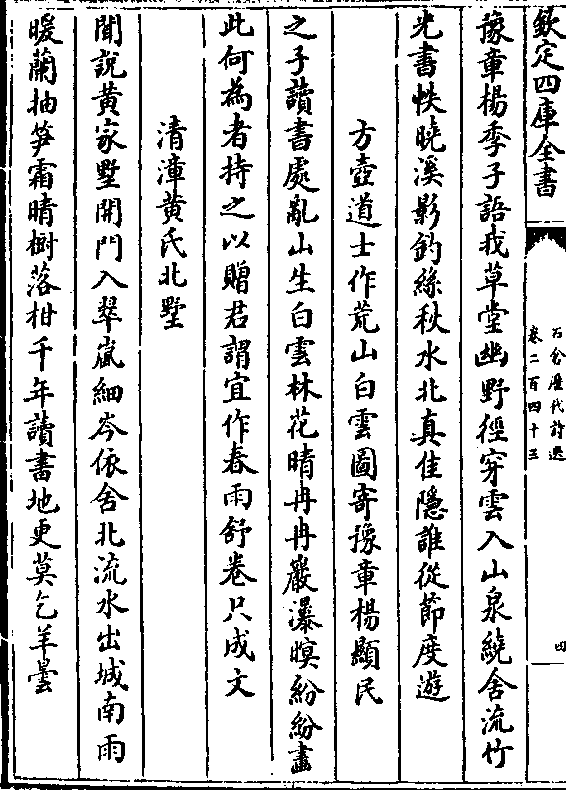 欽定四庫全書
石倉歷代詩選
卷二百四十三
四
豫章楊季子語我草堂幽野徑穿雲入山泉繞舍流竹
光書帙曉溪影釣絲秋水北真佳隱誰從節度遊
方壺道士作荒山白雲圖寄豫章楊顯民
之子讀書處亂山生白雲林花晴冉冉巖瀑暝紛紛畫
此何為者持之以贈君謂宜作春雨舒卷只成文
清漳黄氏北墅
聞説黄家墅開門入翠嵐細岑依舍北流水出城南雨
暖蘭抽笋霜晴樹落柑千年讀書地更莫乞羊曇